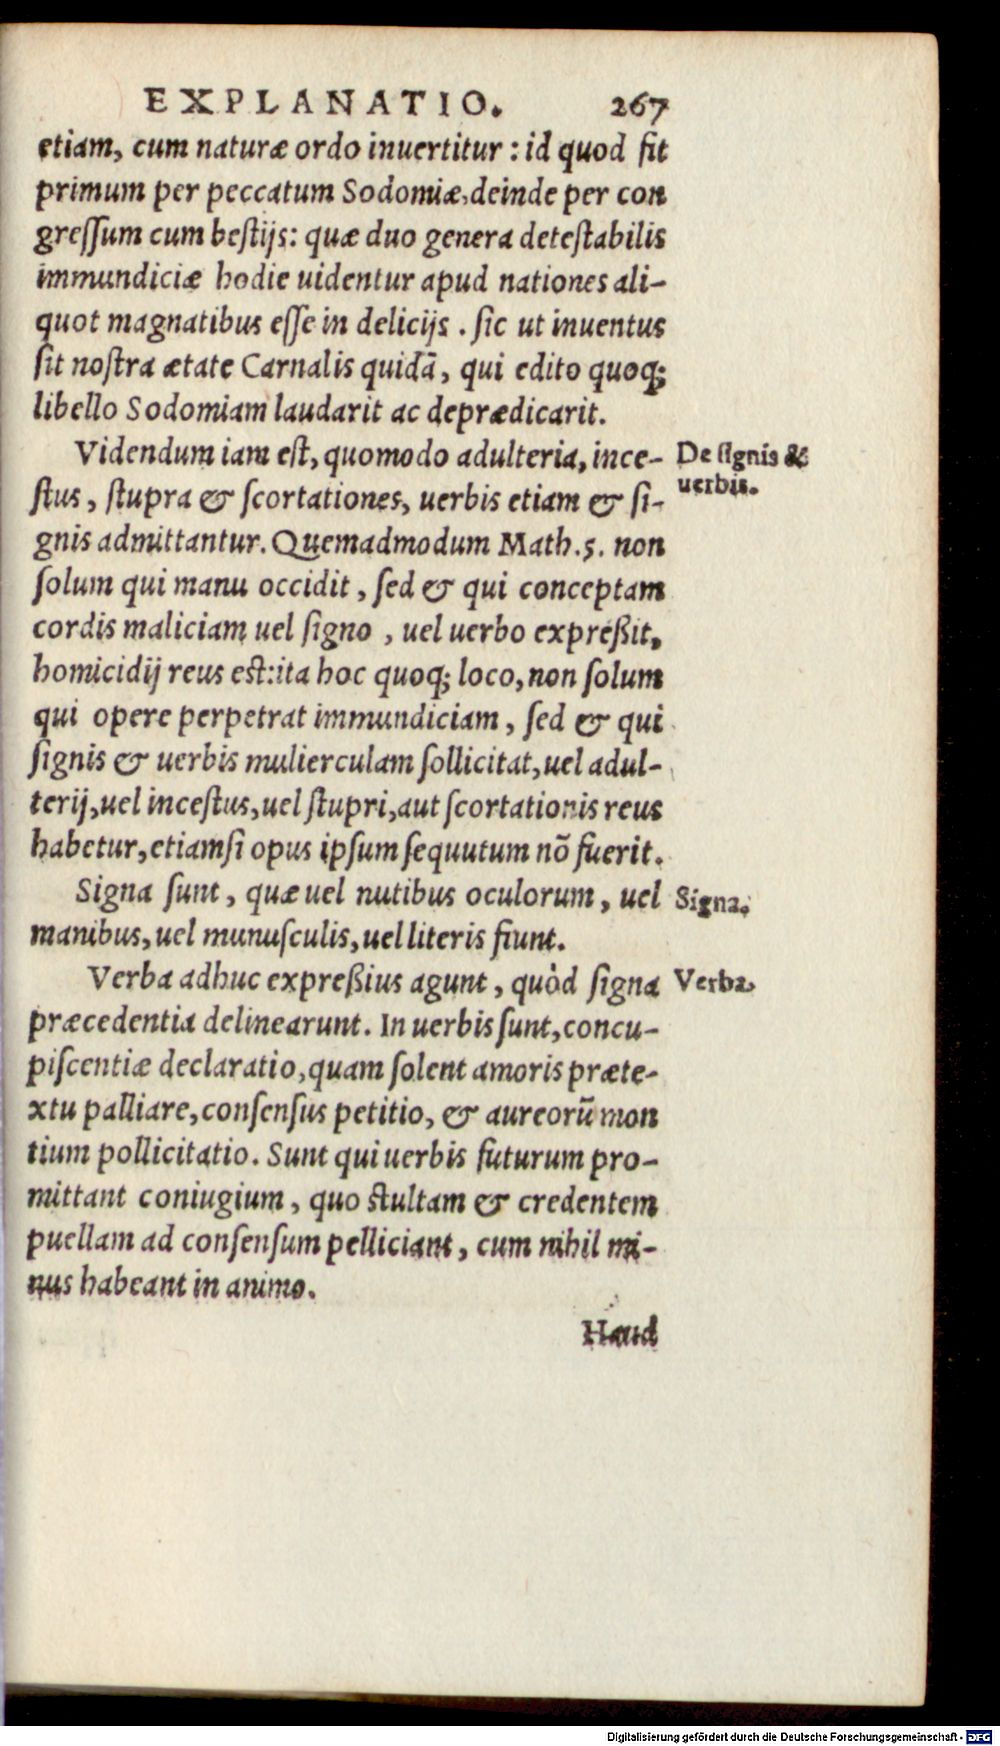 EXPLANATIO. 267
etiam, cum naturæ ordo inuertitur : id quod fit
primum per peccatum Sodomiæ, deinde per con
greſſum cum beſtijs: quæ duo genera deteſtabilis
immundiciæ hodie uidentur apud nationes ali-
quot magnatibus eſſe in delicijs . ſic ut inuentus
ſit noſtra ætate Carnalis quidã, qui edito quoq;
libello Sodomiam laudarit ac deprædicarit.
Videndum iam eſt, quomodo adulteria, ince-
De ſignis &
ſtus, ſtupra & ſcortationes, uerbis etiam & ſi-
uerbis.
gnis admittantur. Quemadmodum Math.5. non
ſolum qui manu occidit, ſed & qui conceptam
cordis maliciam uel ſigno , uel uerbo expreßit,
homicidij reus eſt:ita hoc quoq; loco, non ſolum
qui opere perpetrat immundiciam, ſed & qui
ſignis & uerbis mulierculam ſollicitat, uel adul-
terij, uel inceſtus, uel ſtupri, aut ſcortationis reus
habetur, etiamſi opus ipſum ſequutum nõ fuerit.
Signa ſunt, quæ uel nutibus oculorum, uel
Signa.
manibus, uel munuſculis, uel literis fiunt.
Verba adhuc expreßius agunt, quòd ſigna
Verba.
præcedentia delinearunt. In uerbis ſunt, concu-
piſcentiæ declaratio, quam ſolent amoris præte-
xtu palliare, conſenſus petitio, & aureorũ mon
tium pollicitatio. Sunt qui uerbis futurum pro-
mittant coniugium, quo ſtultam & credentem
puellam ad conſenſum pelliciant, cum nihil mi-
nus habeant in animo.
Haud
Digitalisierung gefördert durch die Deutsche Forschungsgemeinschaft - DFG